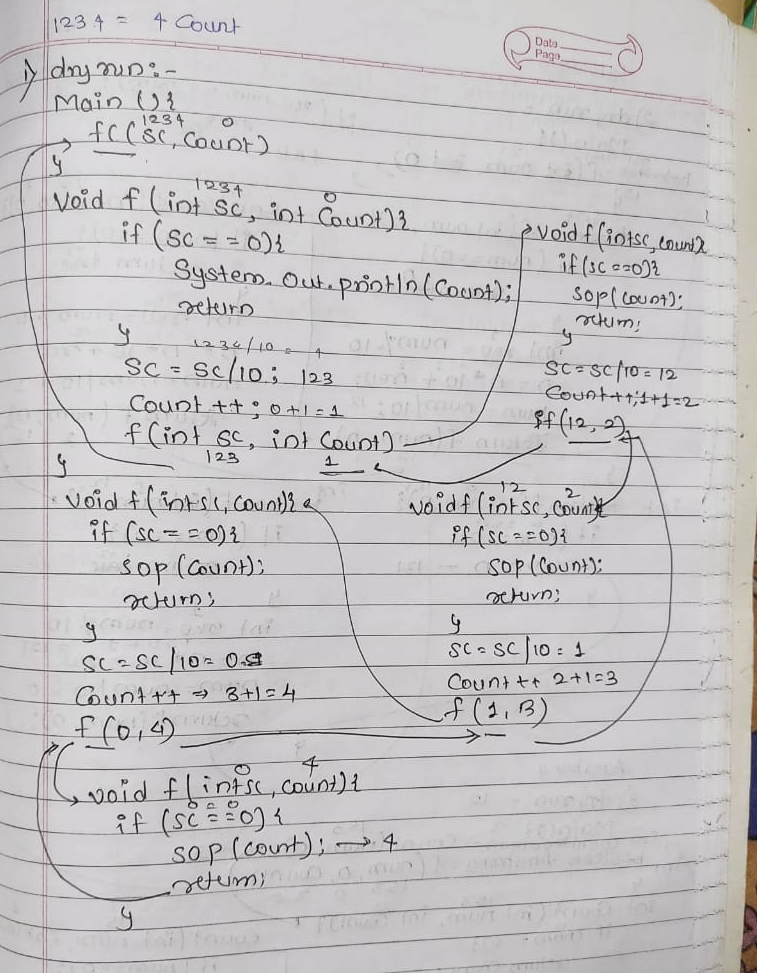 1234 = 4 Count
Date
Page
1) dry run:-
Main () {
1234 0
f(sc, count)
}
1234 0
void f (int sc, int count) {
if (sc == 0) {
System.out.println(count);
return
}
1234/10 = 1
sc = sc/10; 123
Count ++; 0+1=1
f(int sc, int count)
123 1
}
void f(int sc, count) {
if (sc ==0) {
sop(count);
return;
}
sc = sc/10 = 12
Count++; 1+1=2
f(12, 2)
void f(int sc, count) {
if (sc == 0) {
sop (count);
return;
}
sc = sc/10 = 0
Count++ ⇒ 3+1=4
f(0, 4)
12 2
void f (int sc, count) {
if (sc ==0) {
sop(count);
return;
}
sc = sc/10 = 1
Count ++ 2+1=3
f (1, 3)
0 4
void f(int sc, count) {
0 = 0
if (sc == 0) {
sop (count); → 4
return;
}